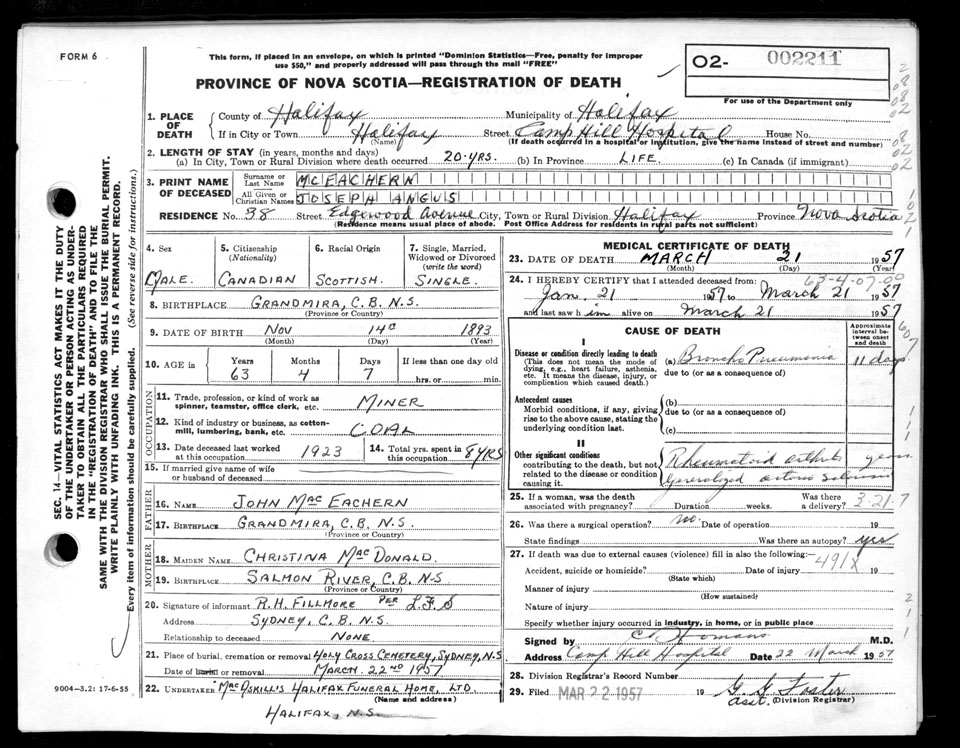 FORM 6
This form, if placed in an envelope, on which is printed "Dominion Statistics—Free, penalty for improper
use $50," and properly addressed will pass through the mail "FREE"
PROVINCE OF NOVA SCOTIA—REGISTRATION OF DEATH
02- 002211
For use of the Department only
1. PLACE OF DEATH County of Halifax Municipality of Halifax
If in City or Town Halifax Street Camp Hill Hospital House No.
(Name) (If death occurred in a hospital or institution, give the name instead of street and number)
2. LENGTH OF STAY (in years, months and days)
(a) In City, Town or Rural Division where death occurred 20 YRS. (b) In Province LIFE. (c) In Canada (if immigrant)
3. PRINT NAME OF DECEASED Surname or Last Name MCEACHERN
All Given or Christian Names JOSEPH ANGUS
RESIDENCE No. 38 Street Edgewood Avenue City, Town or Rural Division Halifax Province Nova Scotia
(Residence means usual place of abode. Post Office Address for residents in rural parts not sufficient)
4. Sex 5. Citizenship (Nationality) 6. Racial Origin 7. Single, Married, Widowed or Divorced (write the word)
MALE. CANADIAN SCOTTISH. SINGLE.
8. BIRTHPLACE GRAND MIRA, C.B. N.S.
(Province or Country)
9. DATE OF BIRTH NOV 14 1893
(Month) (Day) (Year)
10. AGE in Years Months Days If less than one day
63 4 7 hrs. or min.
OCCUPATION
11. Trade, profession, or kind of work as spinner, teamster, office clerk, etc. MINER
12. Kind of industry or business, as cotton-mill, lumbering, bank, etc. COAL
13. Date deceased last worked at this occupation 1923 14. Total yrs. spent in this occupation 8 YRS
15. If married give name of wife or husband of deceased
FATHER
16. NAME JOHN MACEACHERN
17. BIRTHPLACE GRAND MIRA, C.B. N.S.
(Province or Country)
MOTHER
18. MAIDEN NAME CHRISTINA MACDONALD
19. BIRTHPLACE SALMON RIVER, C.B. N.S
(Province or Country)
20. Signature of informant R.H. FILLMORE PER L.F.S
Address SYDNEY, C.B. N.S.
Relationship to deceased NONE
21. Place of burial, cremation or removal HOLY CROSS CEMETERY, SYDNEY, N.S
Date of burial or removal MARCH 22ND 1957
22. UNDERTAKER MACASKILL'S HALIFAX FUNERAL HOME, LTD.
(Name and address)
HALIFAX, N.S.
9004—3.2: 17-6-55
MEDICAL CERTIFICATE OF DEATH
23. DATE OF DEATH MARCH 21 1957
(Month) (Day) (Year)
24. I HEREBY CERTIFY that I attended deceased from: 63-4-07-00
Jan. 21 1957 to March 21 1957
and last saw him alive on March 21 1957
CAUSE OF DEATH
Approximate interval between onset and death
I
Disease or condition directly leading to death (a) Broncho Pneumonia 11 days
(This does not mean the mode of dying, e.g., heart failure, asthenia, etc. It means the disease, injury, or complication which caused death.)
due to (or as a consequence of)
Antecedent causes
Morbid conditions, if any, giving rise to the above cause, stating the underlying condition last.
(b)
due to (or as a consequence of)
(c)
II
Other significant conditions contributing to the death, but not related to the disease or condition causing it.
Rheumatoid arthritis years
Generalized
25. If a woman, was the death associated with pregnancy? Duration weeks. Was there a delivery? 3-21-7
26. Was there a surgical operation? no. Date of operation 19
State findings Was there an autopsy? yes
27. If death was due to external causes (violence) fill in also the following:— 491X
Accident, suicide or homicide? Date of injury 19
(State which)
Manner of injury
(How sustained)
Nature of injury
Specify whether injury occurred in industry, in home, or in public place
Signed by Homans M.D.
Address Camp Hill Hospital Date 22 March 1957
28. Division Registrar's Record Number
29. Filed MAR 22 1957 19 G. G. Foster
asst. (Division Registrar)
SEC. 14—VITAL STATISTICS ACT MAKES IT THE DUTY
OF THE UNDERTAKER OR PERSON ACTING AS UNDER-
TAKER TO OBTAIN ALL THE PARTICULARS REQUIRED
IN THE "REGISTRATION OF DEATH" AND TO FILE THE
SAME WITH THE DIVISION REGISTRAR WHO SHALL ISSUE THE BURIAL PERMIT.
WRITE PLAINLY WITH UNFADING INK. THIS IS A PERMANENT RECORD.
Every item of information should be carefully supplied. (See reverse side for instructions.)